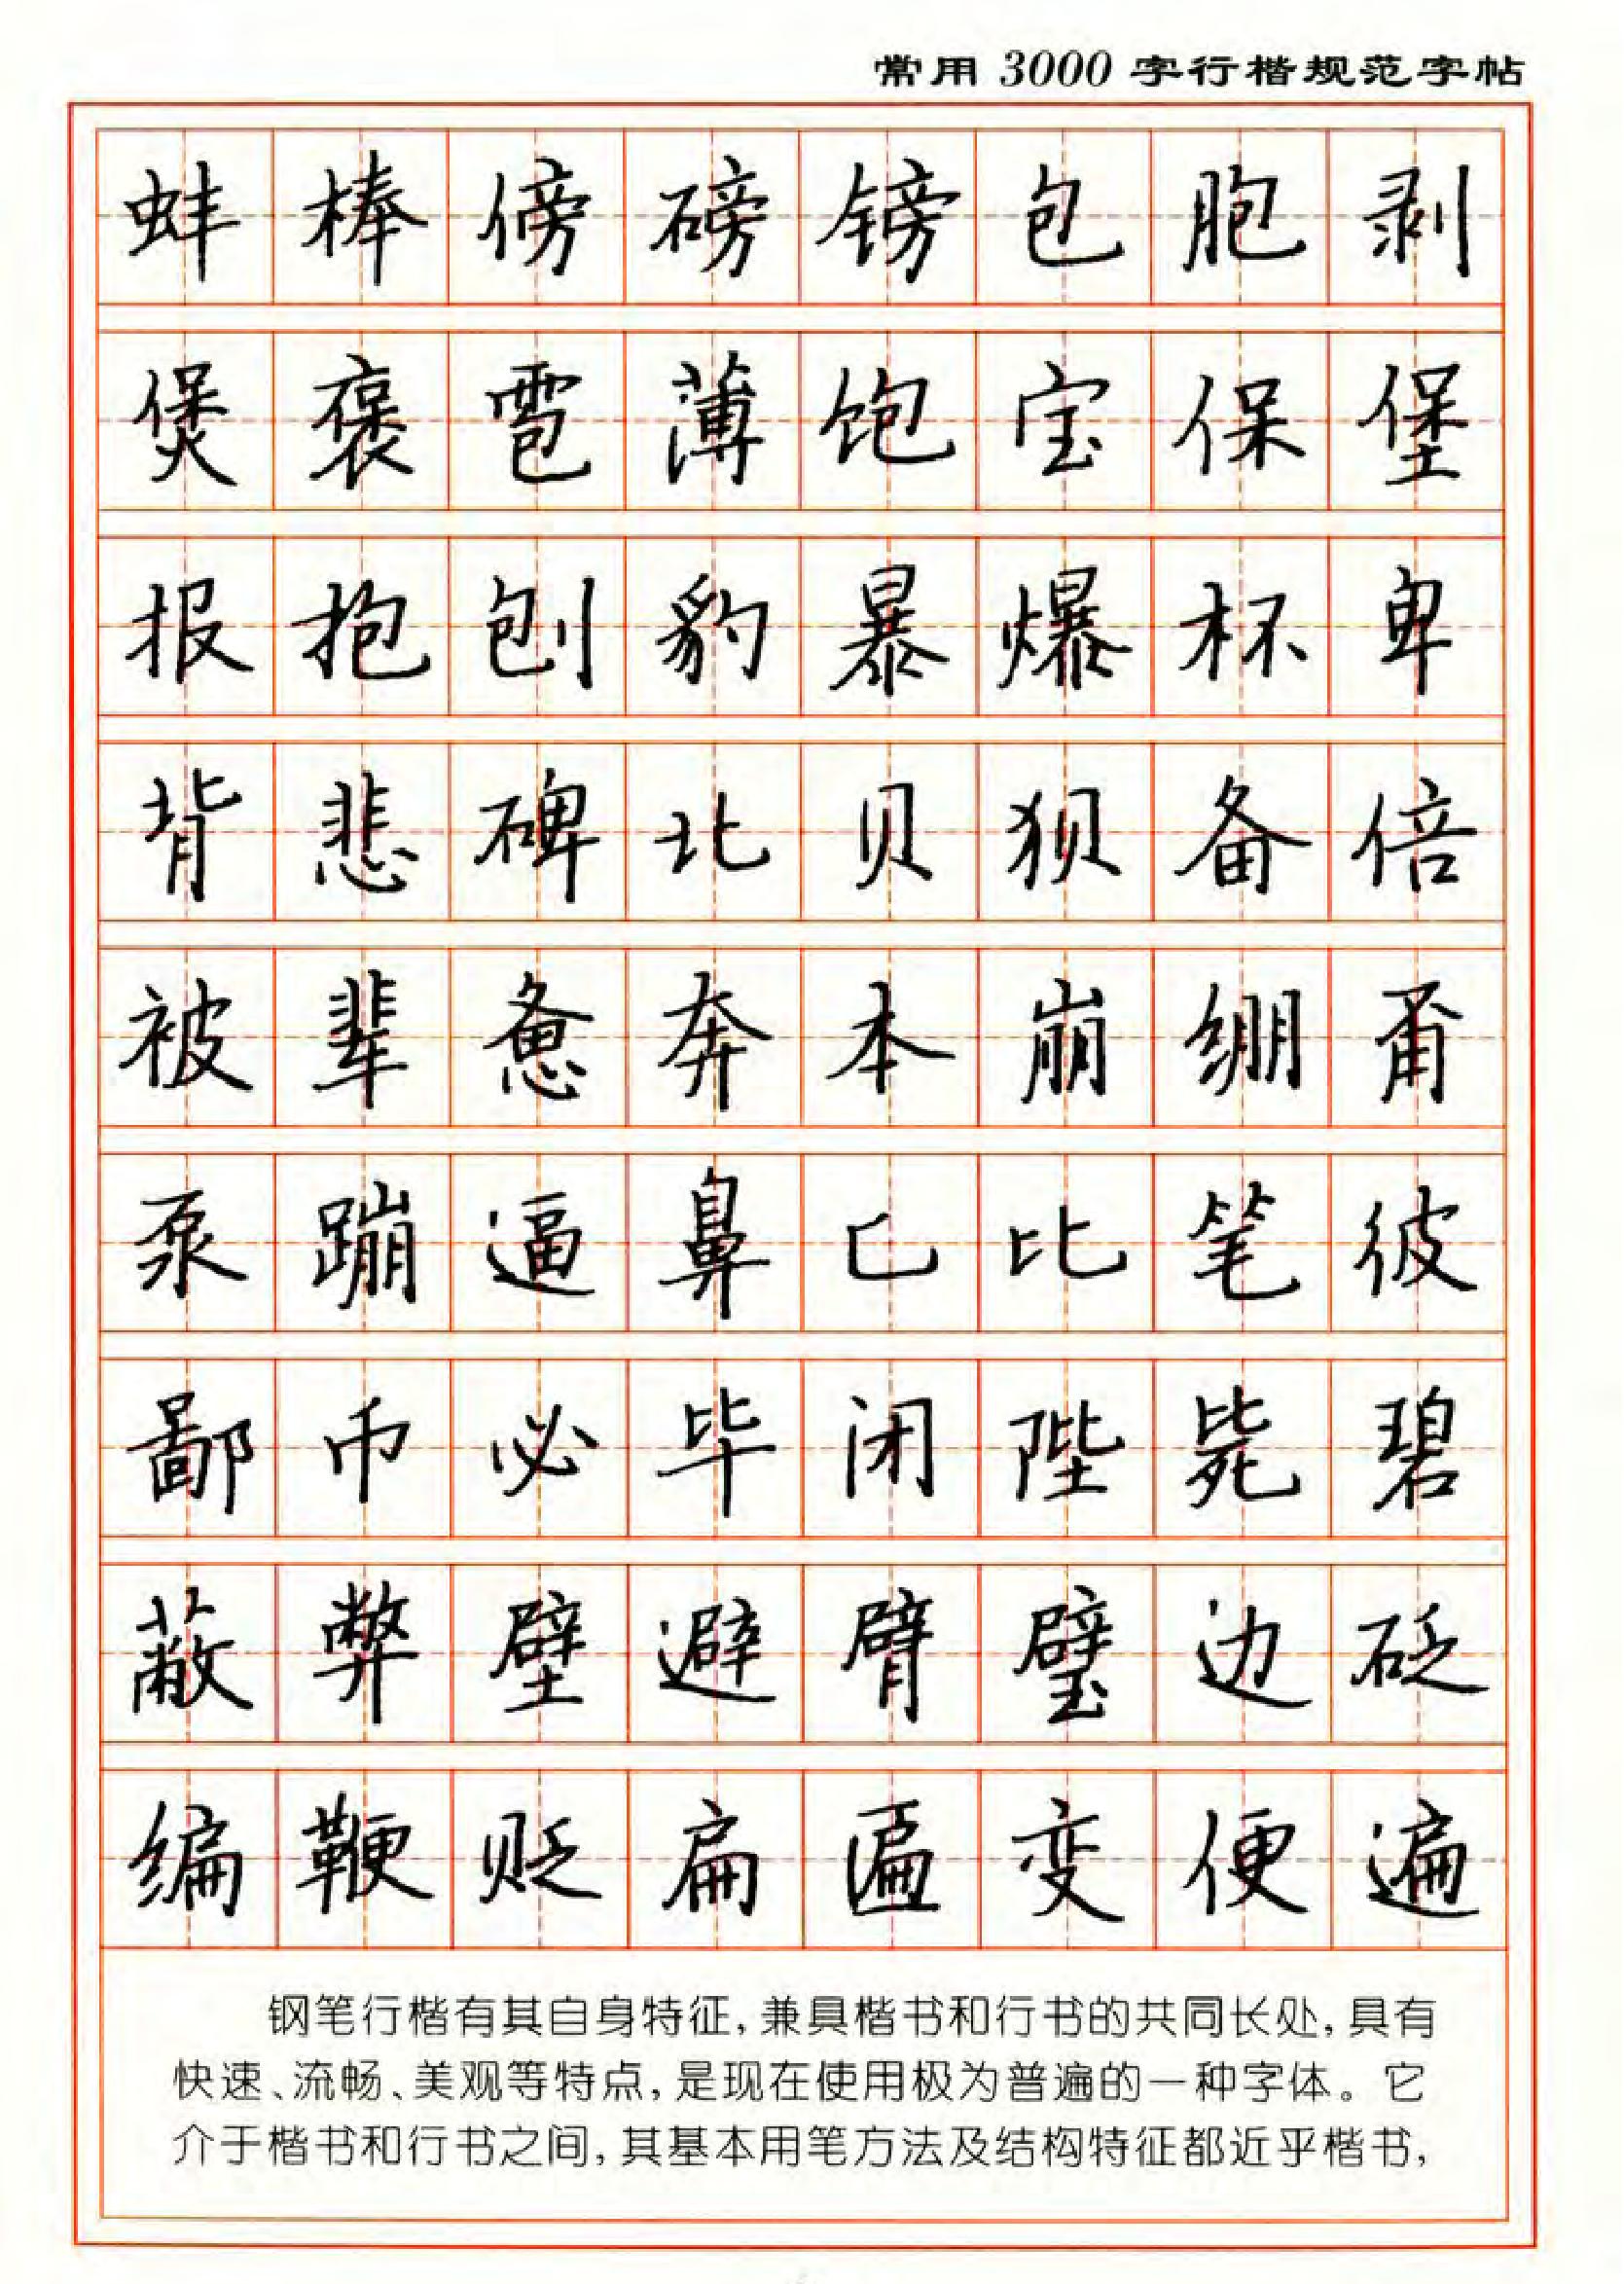 常用3000字行楷规范字帖
蚌棒傍磅镑包胞剥
煲褒雹薄饱宝保堡
报抱刨豹暴爆杯卑
背悲碑北贝狈备倍
被辈惫奔本崩绷甭
泵蹦逼鼻匕比笔彼
鄙币必毕闭陛毙碧
蔽弊壁避臂璧边砭
编鞭贬扁匾变便遍
钢笔行楷有其自身特征,兼具楷书和行书的共同长处,具有
快速、流畅、美观等特点,是现在使用极为普遍的一种字体。它
介于楷书和行书之间,其基本用笔方法及结构特征都近乎楷书,